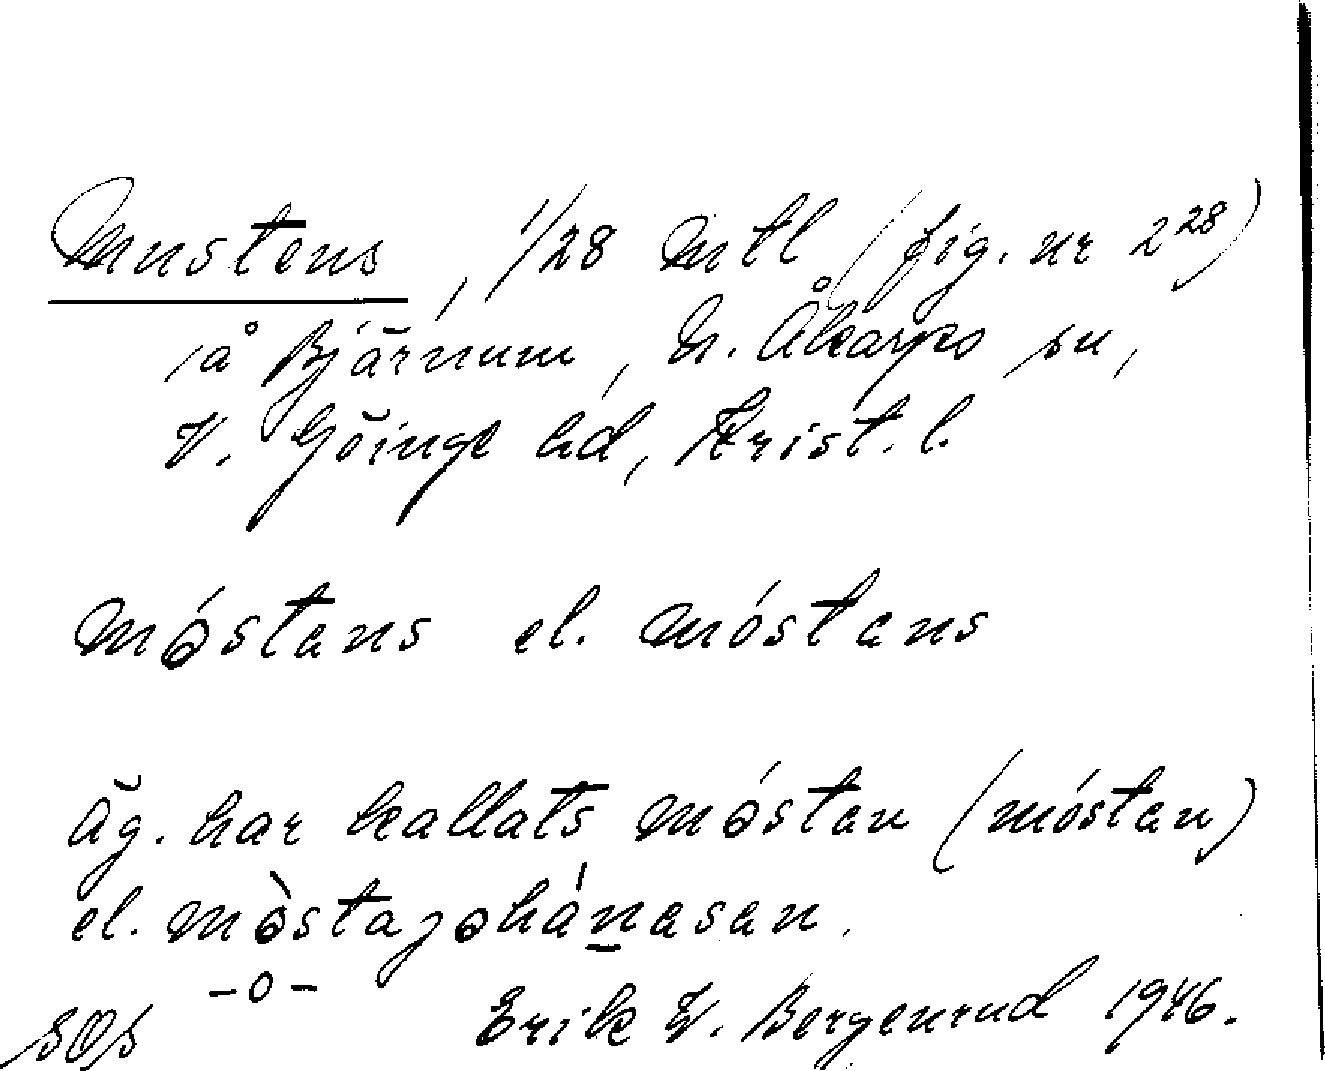 Mustens, 1/28 mtl (fig. nr 2²⁸)
å Bjärnum, N. Åkarps sn,
V. Göinge hd, Krist. l.
móstans el. móstans
Äg. har kallats móstan (móstan)
el. mòstajohánasan.
-0-
Erik W. Bergenrud 1946.